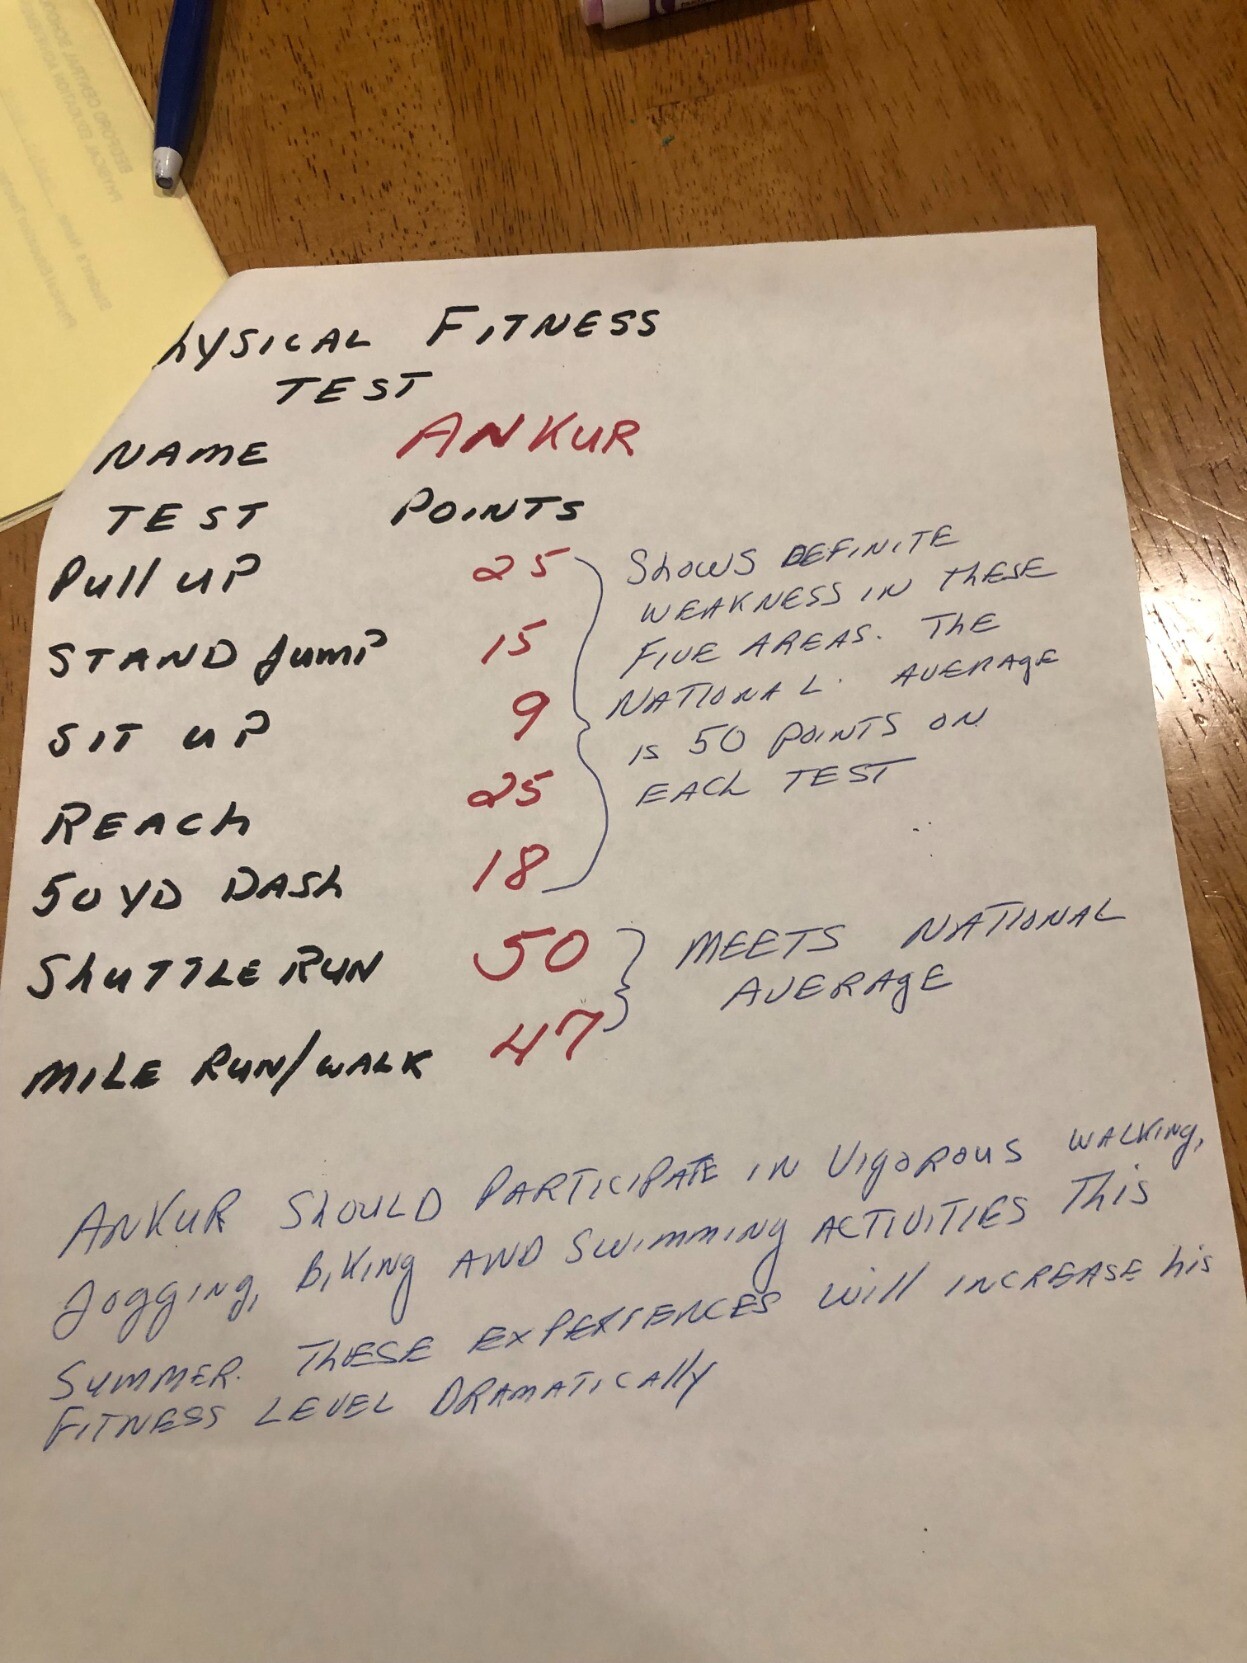 Physical Fitness
Test
Name Ankur
Test Points
Pull up 25
Stand Jump 15
Sit up 9
Reach 25
50 yd Dash 18
Shuttle Run 50
Mile Run/walk 47
Shows definite
weakness in these
five areas. The
national. average
is 50 points on
each test
Meets national
average
Ankur should participate in vigorous walking,
Jogging, Biking and swimming activities this
summer. These experiences will increase his
fitness level dramatically